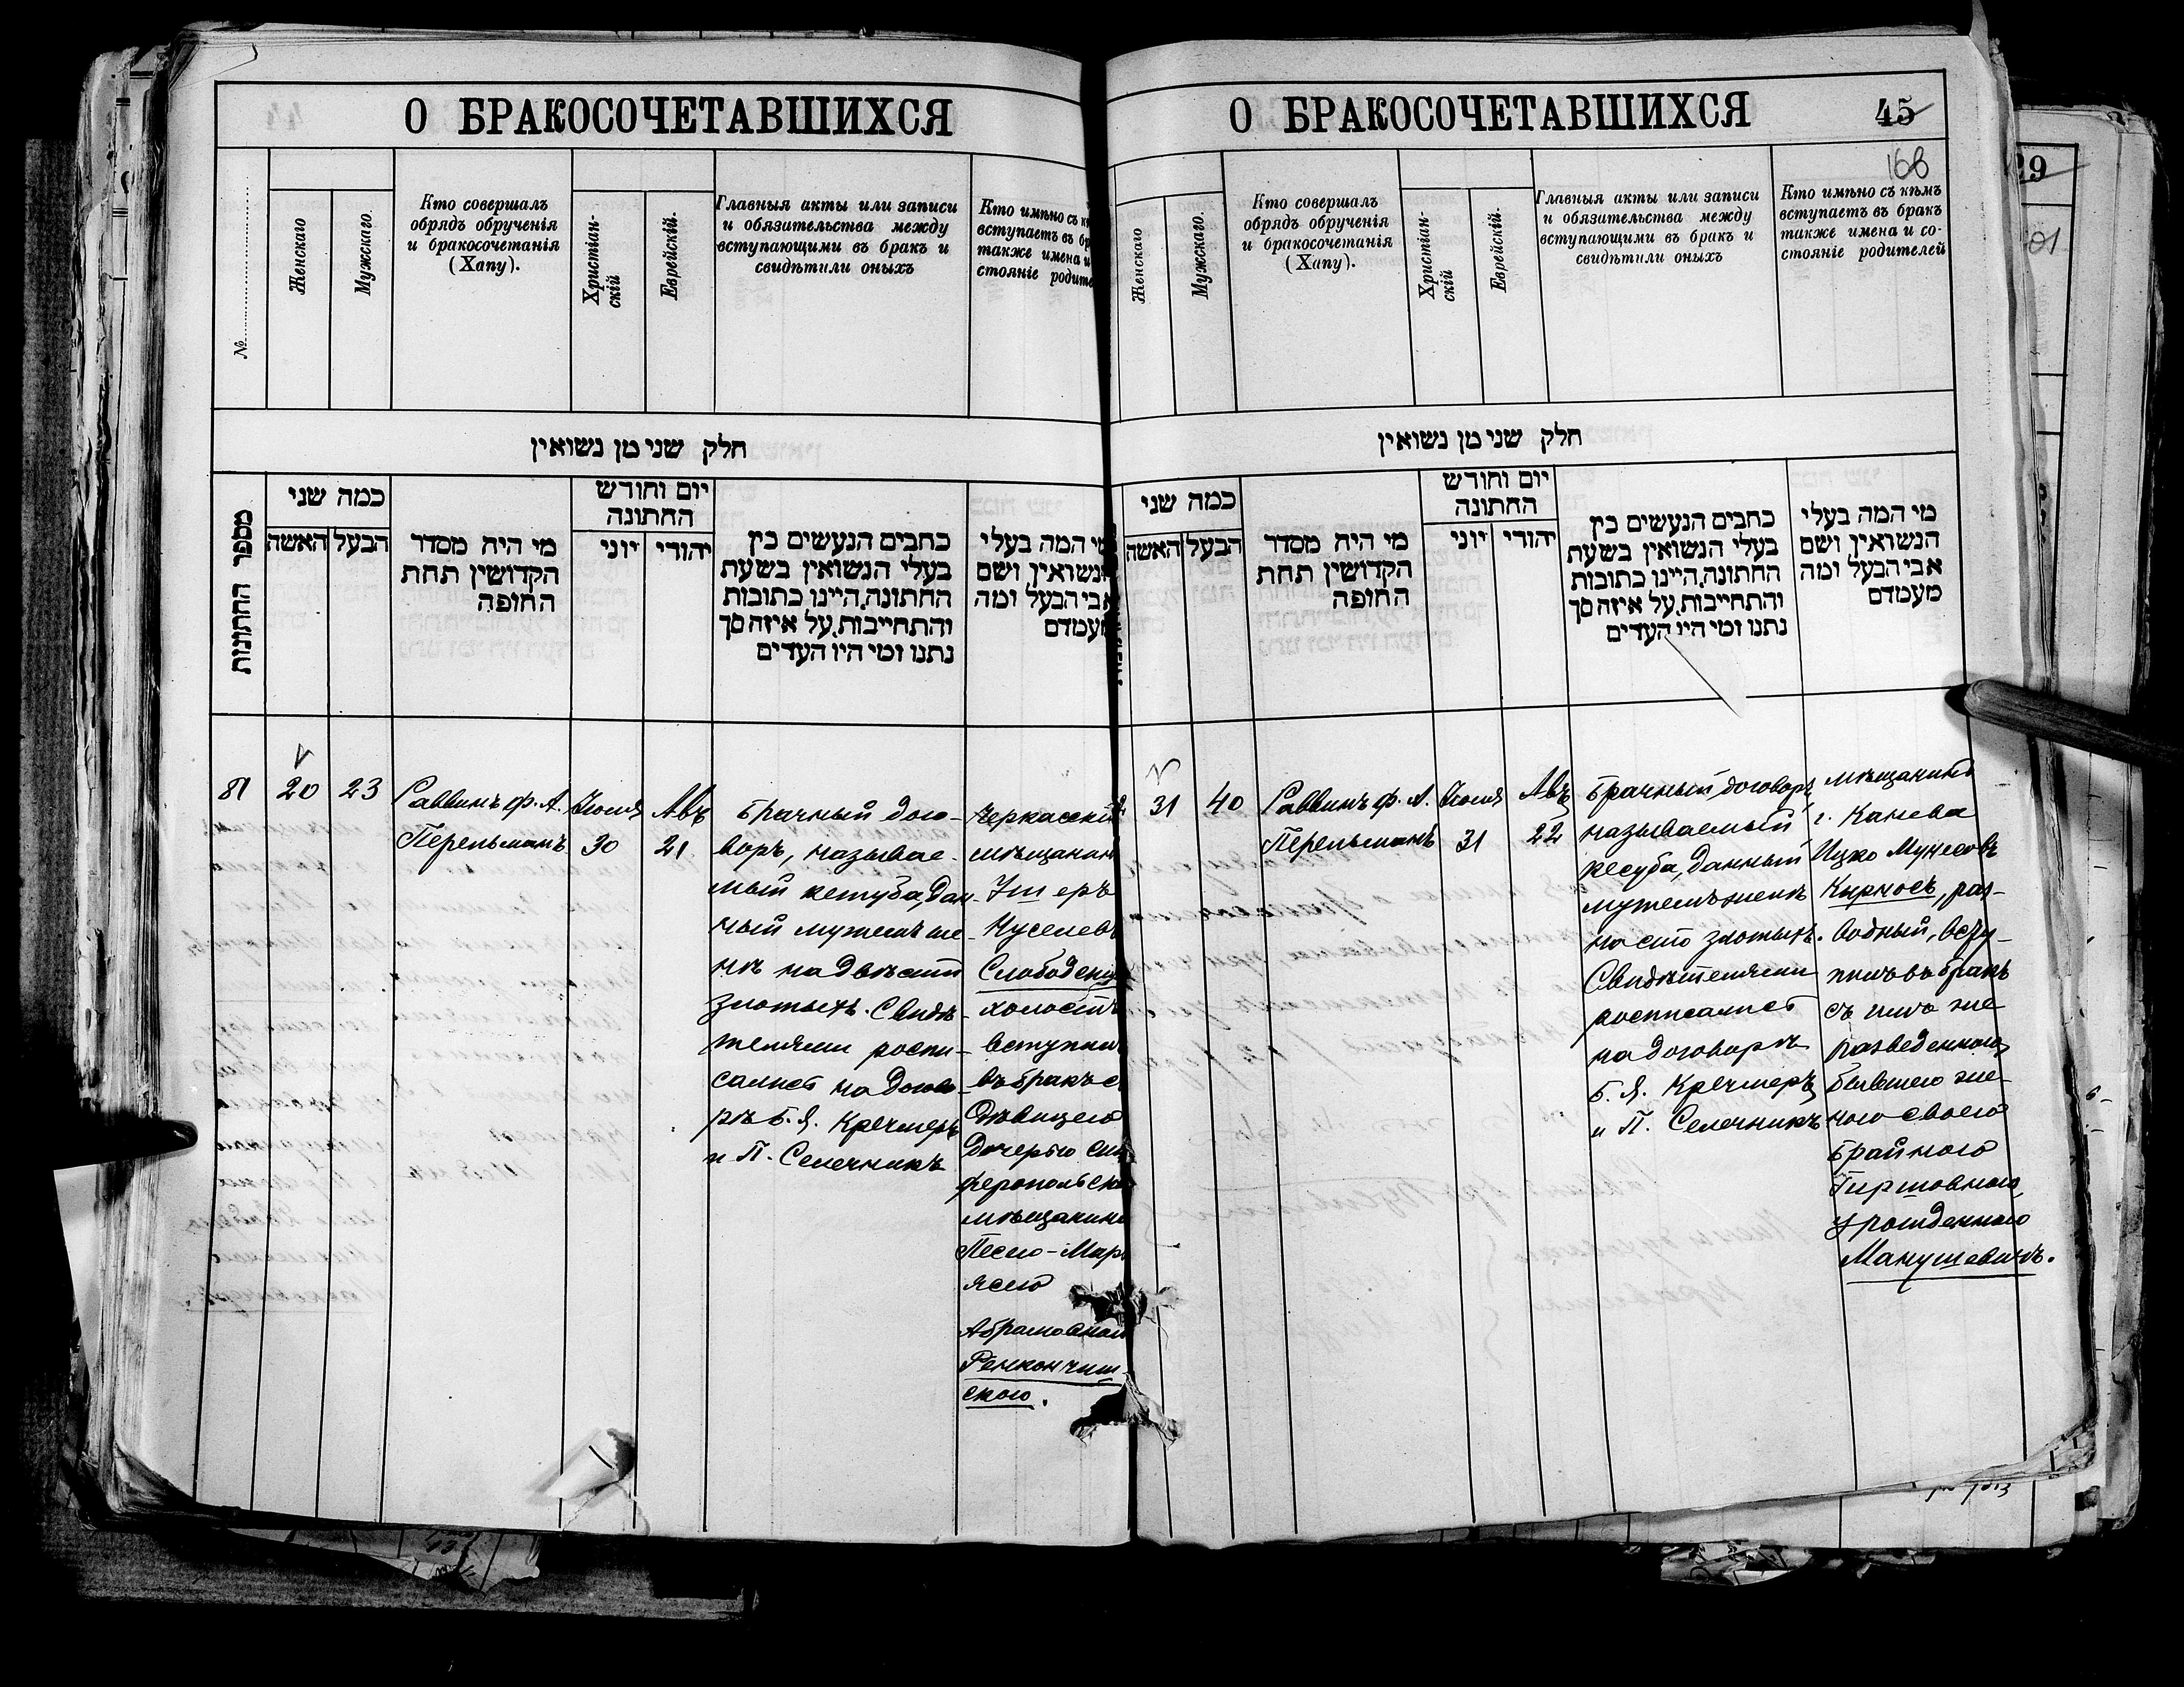 О БРАКОСОЧЕТАВШИХСЯ
№
Женскаго
Мужскаго
Кто совершалъ
обрядъ обрученія
и бракосочетанія
(Хапу).
Христіан-
скій
Еврейскій.
Главныя акты или записи
и обязательства между
вступающими въ бракъ и
свидѣтили оныхъ
Кто имѣно съ
вступаетъ въ
также имена и
стояніе
חלק שני מן נשואין
מספר החתונות
כמה שני
האשה
הבעל
מי היה מסדר
הקדושין תחת
החופה
יום וחודש
החתונה
יוני
יהודי
כתבים הנעשים בין
בעלי הנשואין בשעת
החתונה היינו כתובות
והתחייבות על איזה סך
נתנו ומי היו העדים
מי המה בעלי
הנשואין ושם
אבי הבעל ומה
מעמדם
81
20
23
Раввинъ Ф. А.
Перельманъ
Іюля
30
Авъ
21
Брачный дого-
воръ, называе-
мый кетуба, дан-
ный мужемъ же-
нѣ на двѣсти
злотыхъ. Свидѣ-
телями роспи-
сались на догово-
рѣ Б. Я. Кречмеръ
и П. Селечникъ
Черкасскій
мѣщанин
Ушеръ
Нуселевъ
холостъ
вступилъ
въ бракъ с
дѣвицею
дочерью сим
феропольска
мѣщанина
Песею-Марь
ясею
Абрамовной
ского.
О БРАКОСОЧЕТАВШИХСЯ
45
168
Женскаго
Мужскаго.
Кто совершалъ
обрядъ обрученія
и бракосочетанія
(Хапу).
Христіан-
скій
Еврейскій.
Главныя акты или записи
и обязательства между
вступающими въ бракъ и
свидѣтили оныхъ
Кто имѣно съ кѣмъ
вступаетъ въ бракъ
также имена и со-
стояніе родителей
חלק שני מן נשואין
כמה שני
האשה
הבעל
מי היה מסדר
הקדושין תחת
החופה
יום וחודש
החתונה
יוני
יהודי
כתבים הנעשים בין
בעלי הנשואין בשעת
החתונה היינו כתובות
והתחייבות על איזה סך
נתנו ומי היו העדים
מי המה בעלי
הנשואין ושם
אבי הבעל ומה
מעמדם
31
40
Раввинъ Ф. А.
Перельманъ
Іюля
31
Авъ
22
Брачный договоръ
называемый
кесуба, данный
мужемъ женѣ
на сто злотыхъ.
Свидѣтелями
росписались
на договорѣ
Б. Я. Кречмеръ
и П. Селечникъ
мѣщанинъ
г. Канева
Ицко
Кирносъ, раз-
водный, всту-
пилъ въ бракъ
съ имъ же
разведенною,
бывшею же-
ною своею
Брайною
Гиршовною,
урожденною
Манушевичъ.
29